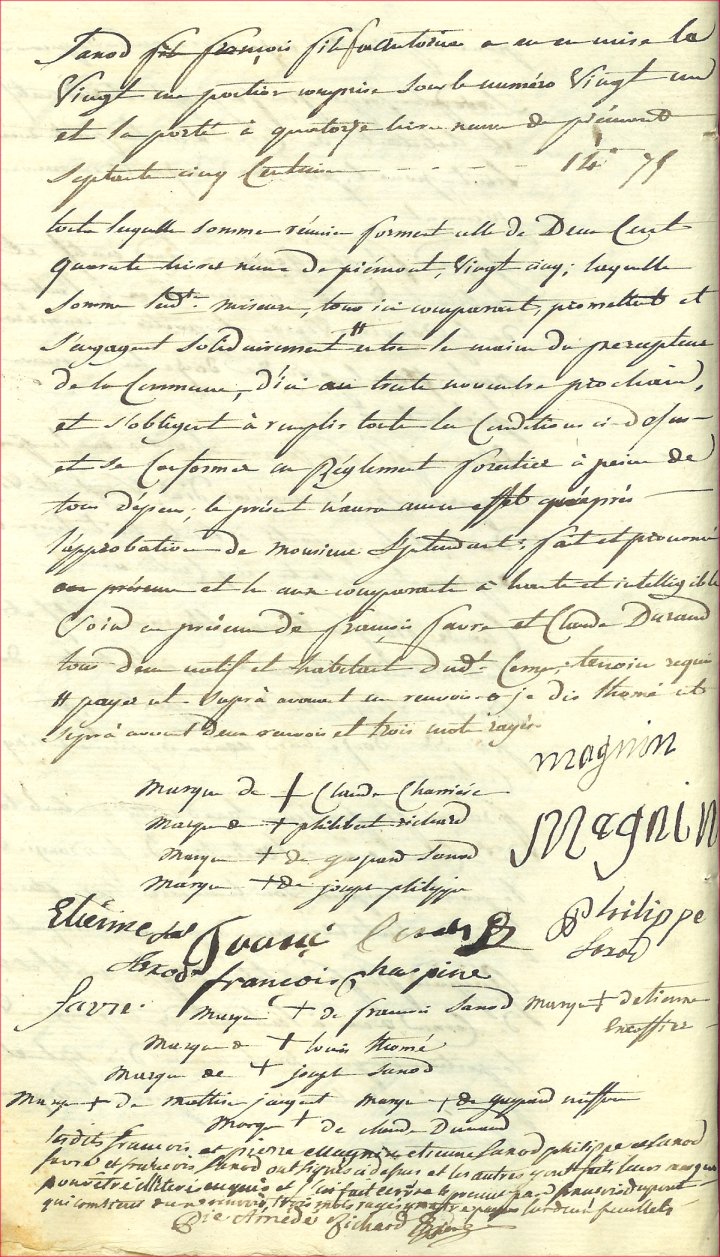 Sanod fils françois fils feu Antoine a eu en mise la
Vingt une portion comprise sous le numéro Vingt un
et la porté à quatorze livre neuve de piémont
Septante cinq Centime - - - - 14 75
toute laquelle somme réunie forment celle de Deux Cent
Quarante livres neuve de piémont, Vingt cinq; laquelle
Somme lesd.t miseurs, tous ici comparant, promettent et
S'engagent Solidairement # entre les mains du percepteur
de la Commune, d'ici au trente novembre prochain,
et s'obligent à remplir toute les Conditions ci-dessus
et se Conformer au Réglement forestier à peine de
tous dépens; le présent n'aura aucun effet qu'après
l'approbation de monsieur fait et prononcé
en présence et le aux comparants à haute et intelligible
Voix en présence de françois favre et Claude Durand
tous deux natif et habitant dud.t témoin requis
# payer et Suprà avouent un renvois je dis thomé et
Suprà avouent Deux renvois et trois mots rayés
magnin
Marque de + Claude Charrière
Marque de + philibert richard
Magnin
Marque + de gaspard Sanod
Marque + de joseph philippe
Etienne
Sanod
Philippe
Sanod
françois chaspine
favre
Marque + de françois Sanod
Marque + detienne
Encoffier
Marque de + louis thomé
Marque de + joseph Sanod
Marque + de mathieu jacquet Marque + de gaspard
Marque + de claude Durand
lesdits françois et pierre Magnin etienne Sanod philippe Sanod
favre et françois Sanod ont signés cidesus et les autres y ont faits leurs marque
pour être illitéré enquis et j'ai fait écrire le present par
qui contient deux renvois, trois mots rayés
Pie Amédé Richard